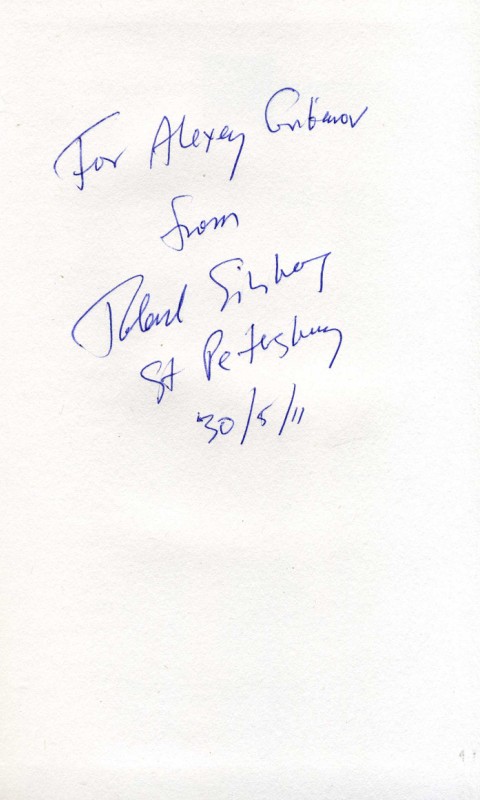 For Alexey Gribanov
from
St Petersburg
30/5/11